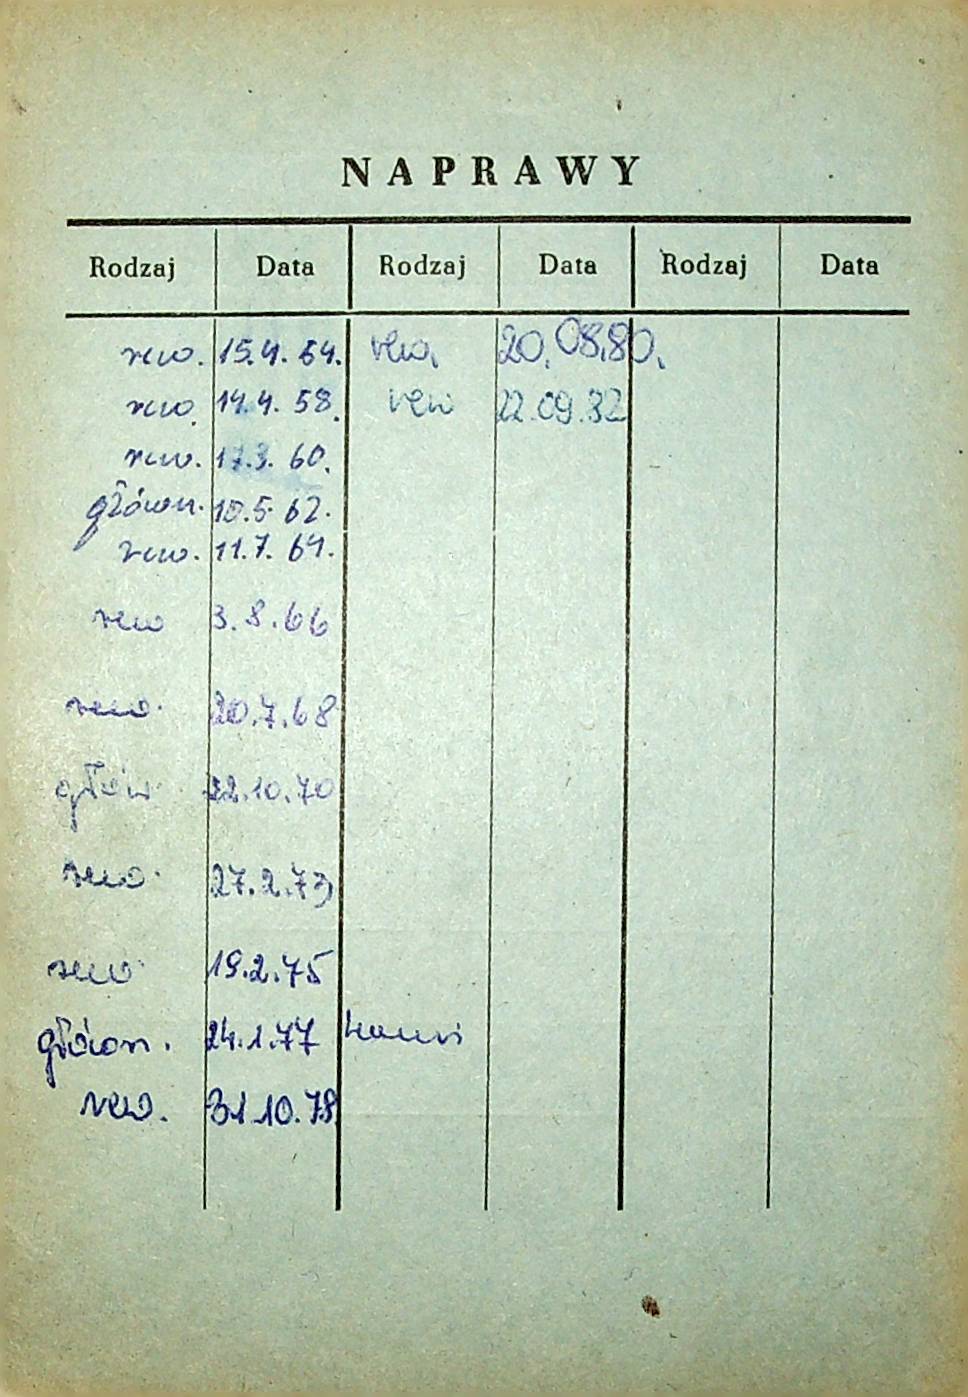 NAPRAWY
Rodzaj Data Rodzaj Data Rodzaj Data
rew. 15.4. 54. rew. 20.08.80.
rew. 14.4. 58. rew 22.09.82
rew. 17.3. 60.
główn. 10.5. 62.
rew. 11.7. 64.
rew 3.8.66
rew. 20.7.68
głów 22.10.70
rew. 27.2.73
rew. 19.2.75
główn. 24.1.77
rew. 31.10.78